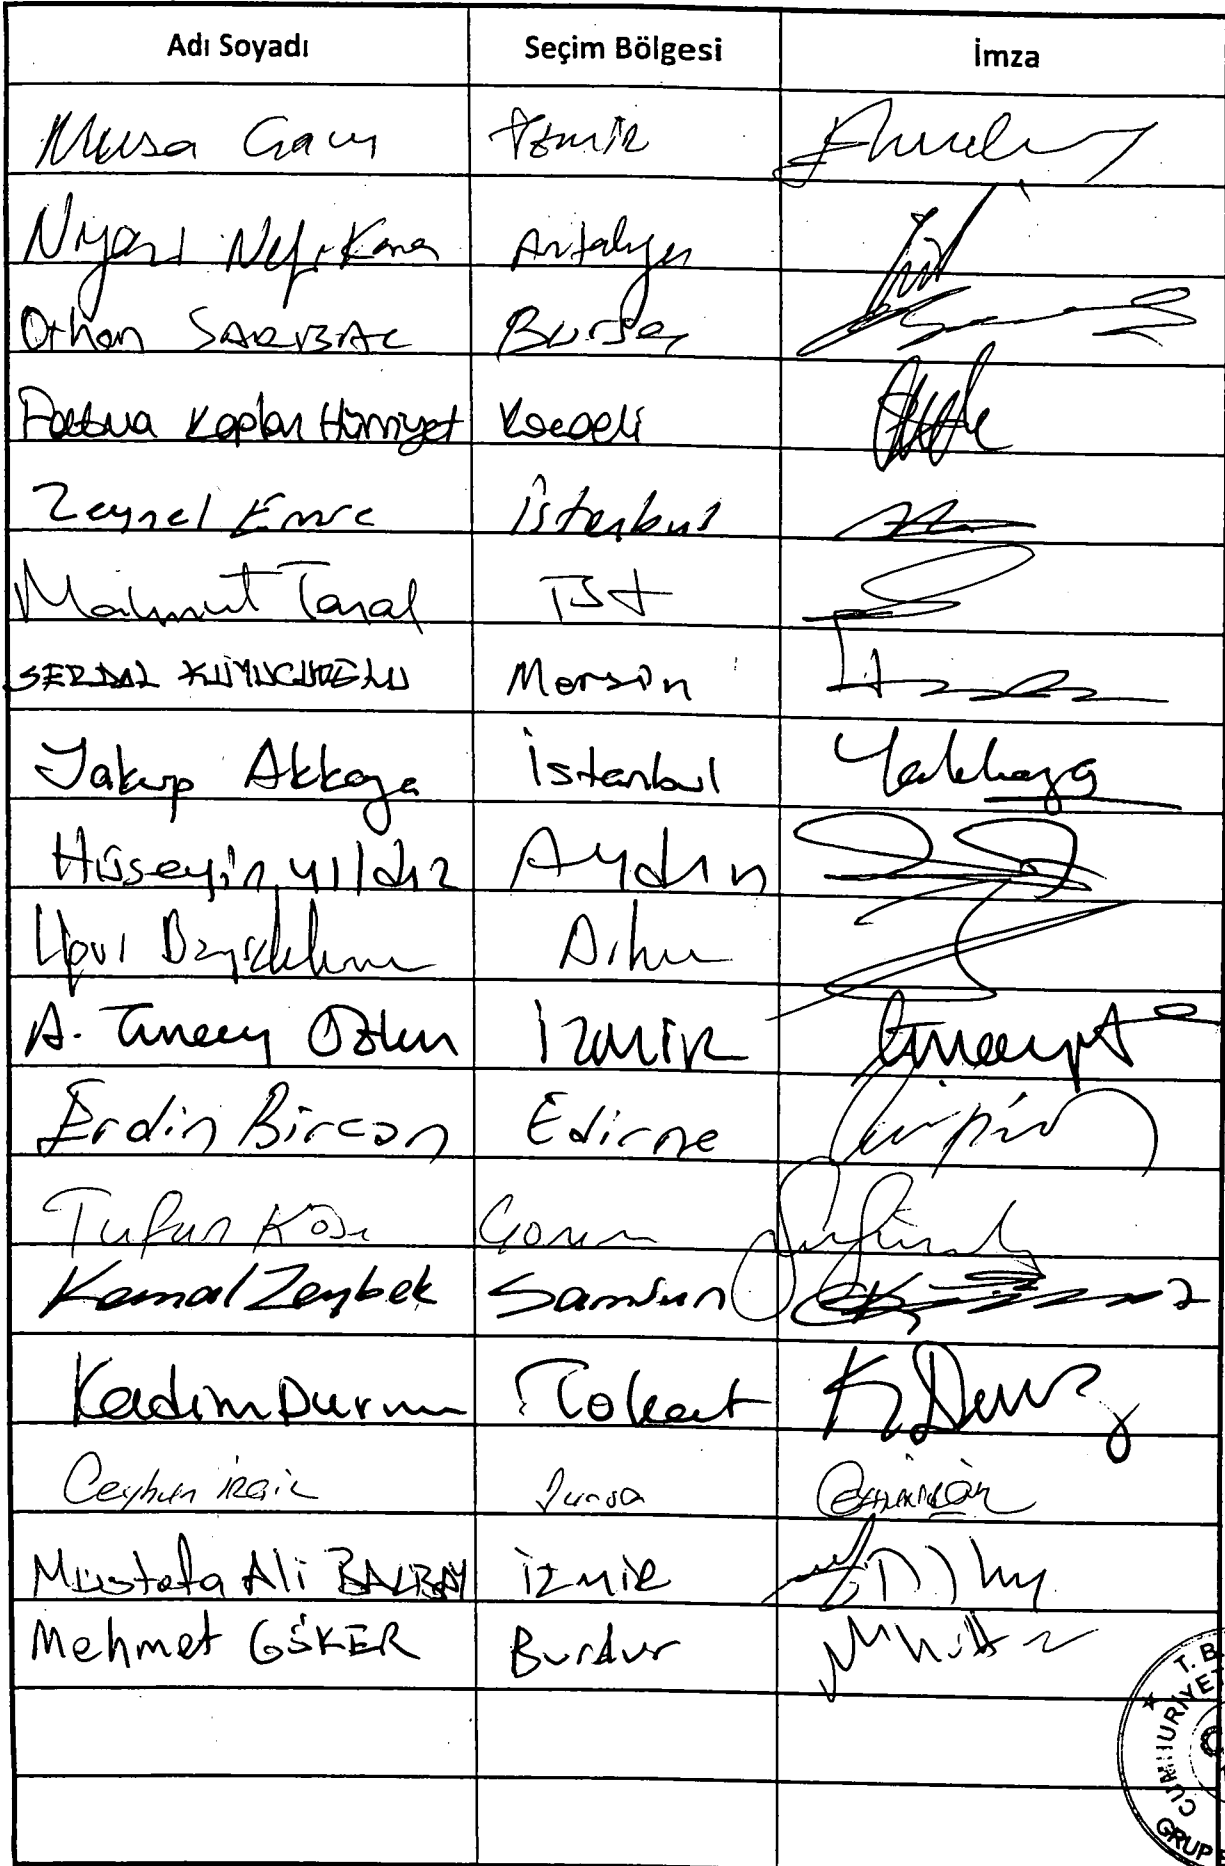 Adı Soyadı Seçim Bölgesi İmza
Musa Çam İzmir
Niyazi Nefi Kara Antalya
Orhan SARIBAL Bursa
Fatma Kaplan Hürriyet Kocaeli
Zeynel Emre İstanbul
Mahmut Tanal İST
SERDAL KUYUCUOĞLU Mersin
Yakup Akkaya İstanbul
Hüseyin Yıldız Aydın
A. Tuncay Özkan İzmir
Erdin Bircan Edirne
Tufan Köse Çorum
Kemal Zeybek Samsun
Kadim Durmaz Tokat
Ceyhun İrgil Bursa
Mustafa Ali BALBAY İzmir
Mehmet GÖKER Burdur
T. B
CUMHURİYET
GRUP